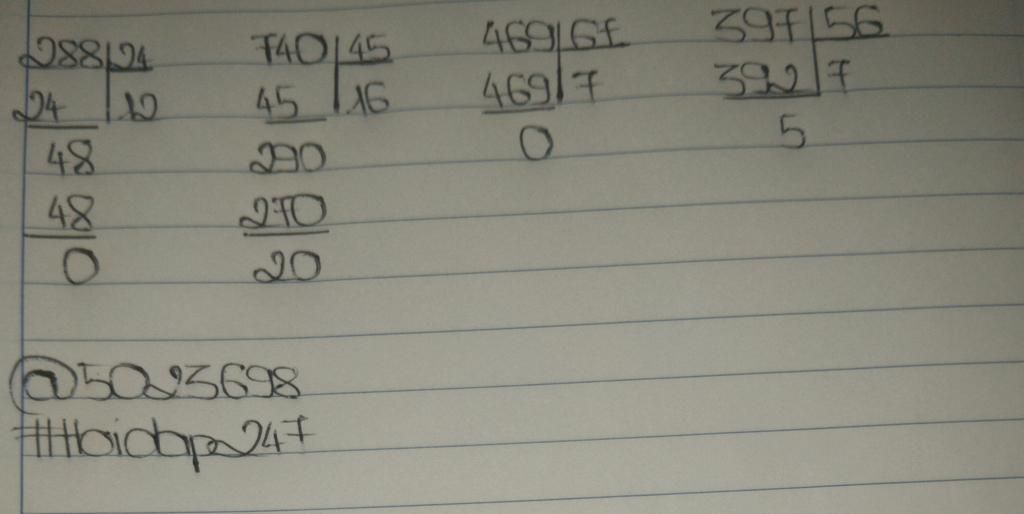 288 24 740 45 469 67 397 56
24 12 45 16 469 7 392 7
48 290 0 5
48 270
0 20
@5023698